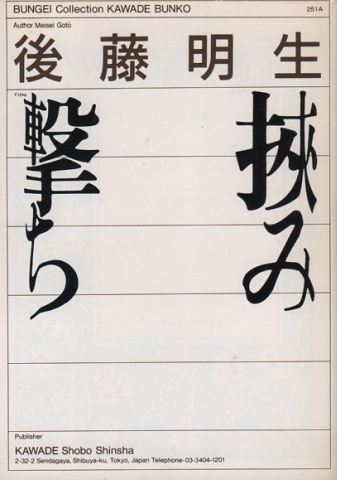 BUNGEI Collection KAWADE BUNKO
251A
Author Meisei Gotō
後藤明生
Title
挾み
撃ち
Publisher
KAWADE Shobo Shinsha
2-32-2 Sendagaya, Shibuya-ku, Tokyo, Japan Telephone-03-3404-1201